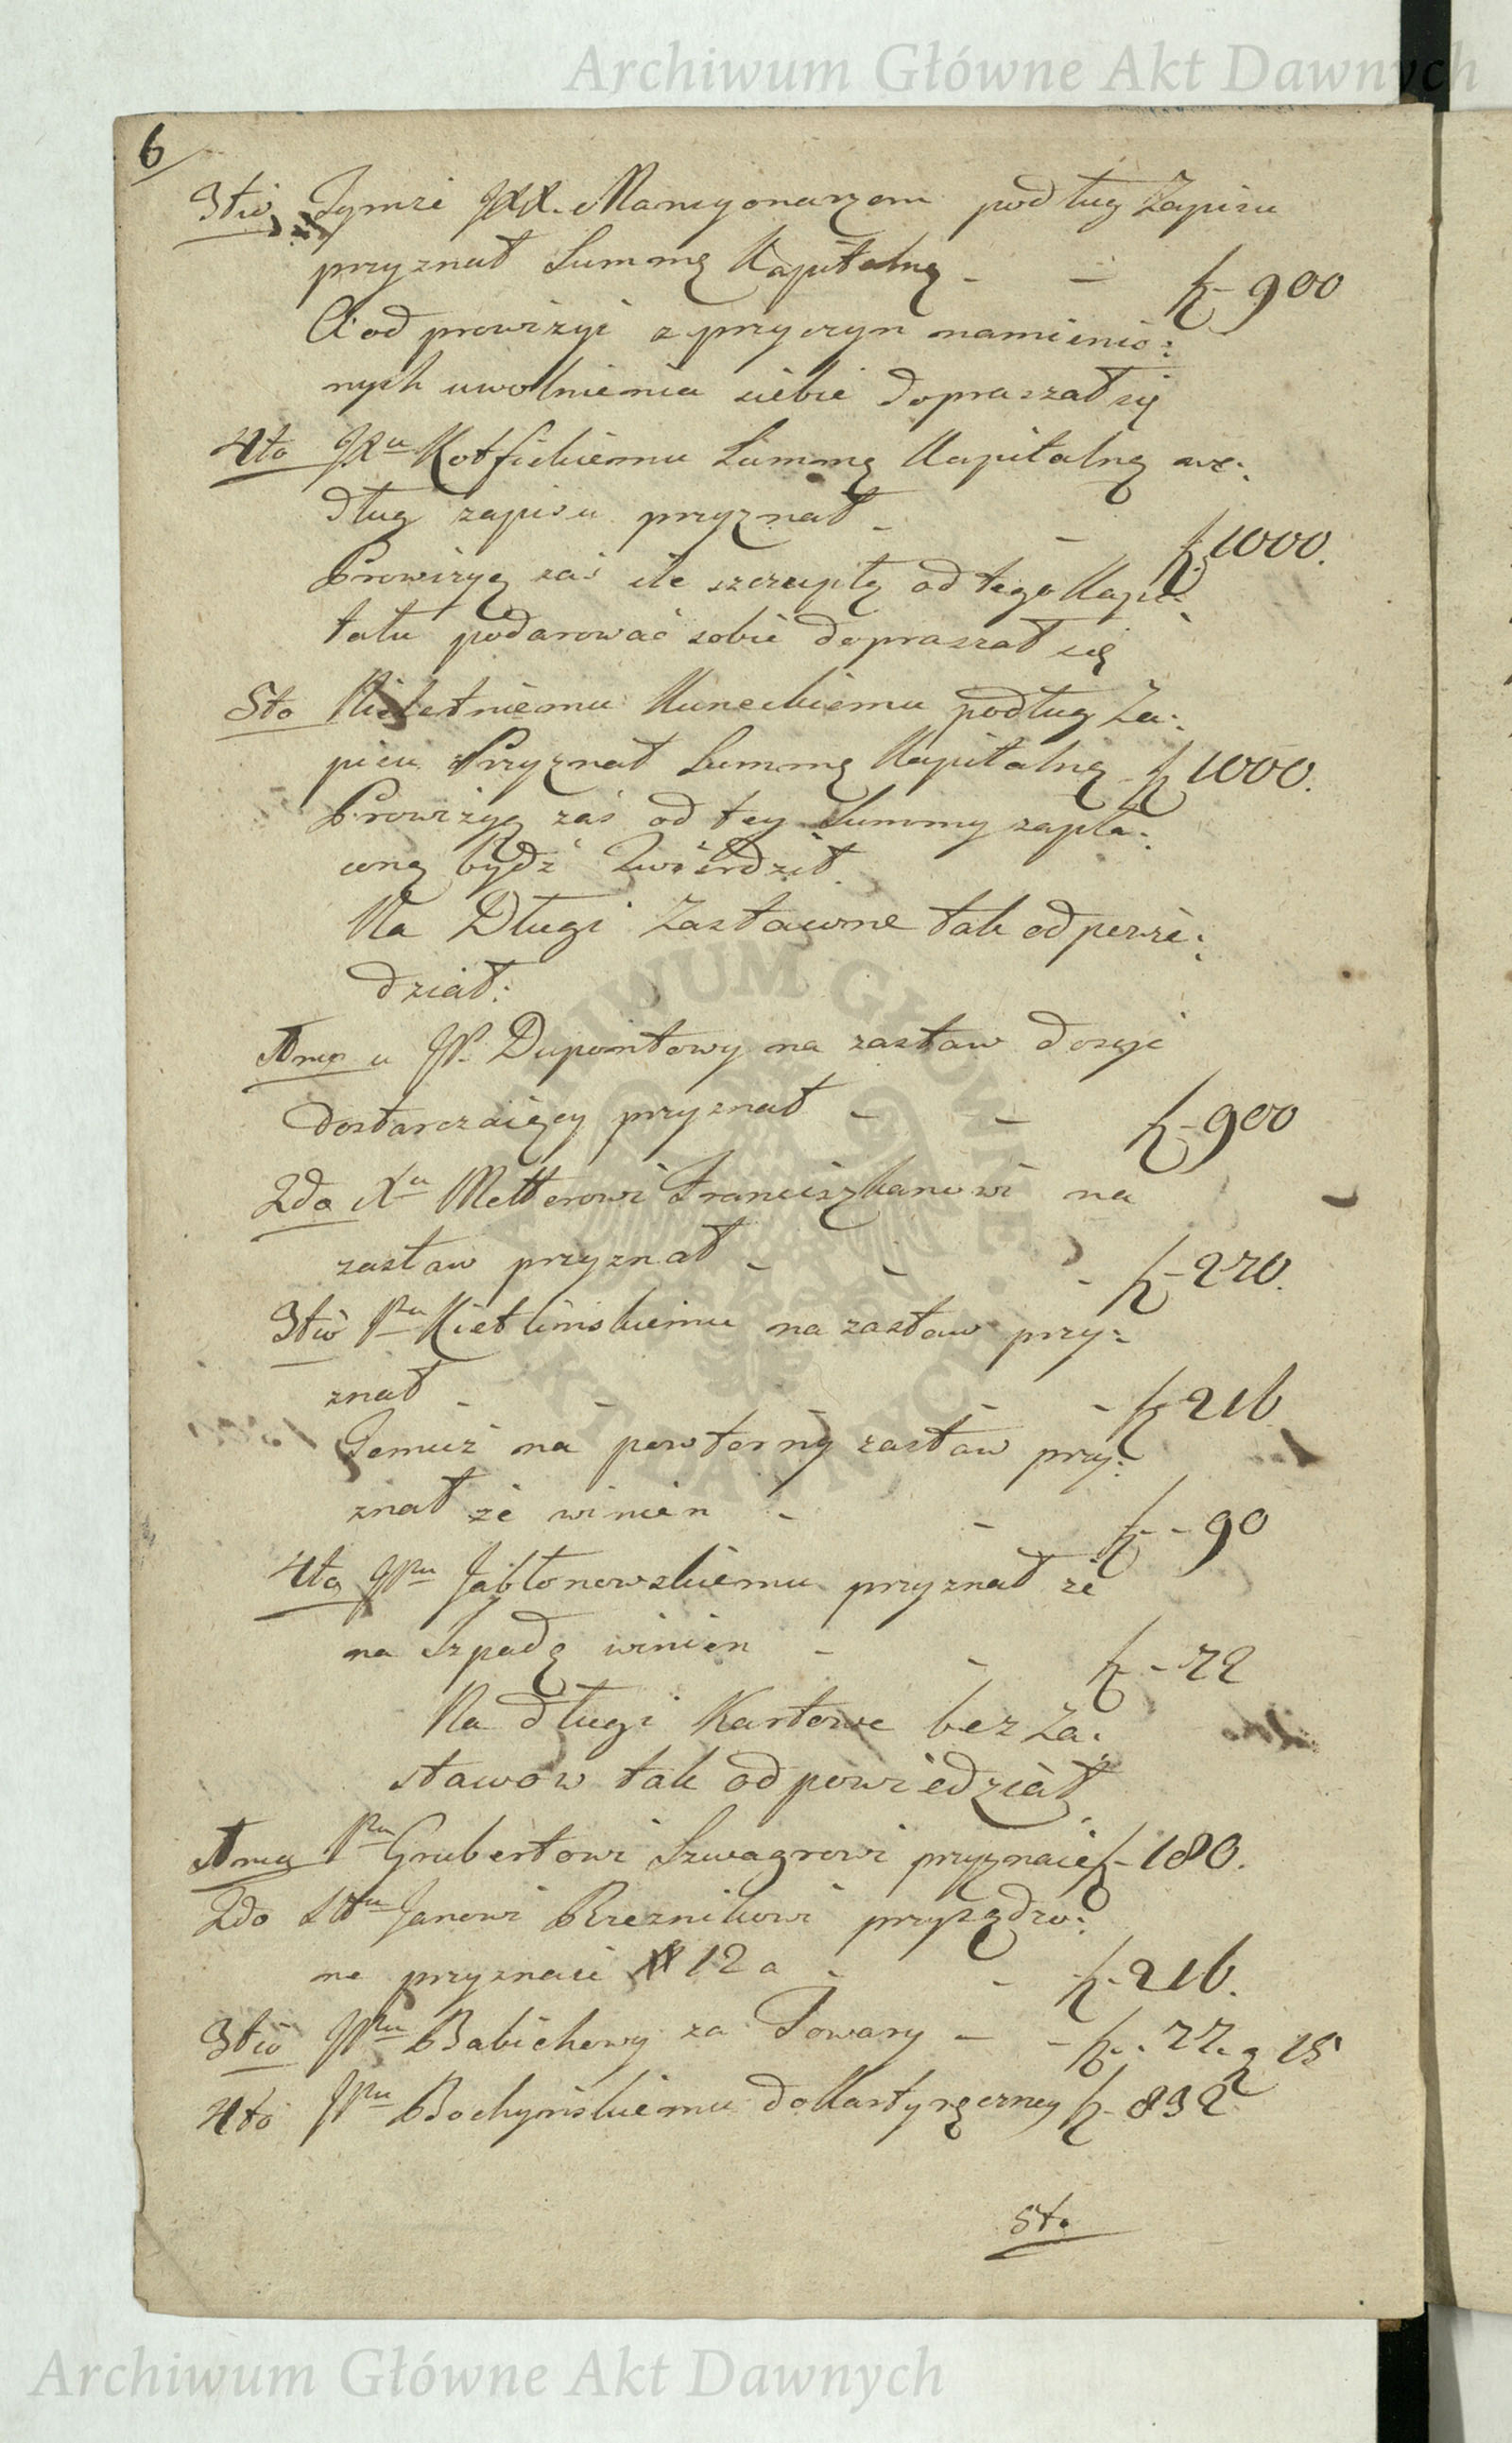 Archiwum Główne Akt Dawnych
6
3tio Tymże JXX. Mansyonarzom podług Zapisu
przyznał Summę Kapitalną - - f 900
A od prowizyi z przyczyn namienio:
nych uwolnienia siebie dopraszał się
4to JXu Kotfickiemu Summę Kapitalną we:
dług zapisu przyznał - - f 1000.
Prowizyę zaś ile szczupłą od tego Kapi:
tału podarować sobie dopraszał się
5to Nieletniemu Kuneckiemu podług Za:
pisu Przyznał Summę Kapitalną f 1000.
Prowizyę zaś od tey Summy zapła:
coną bydź Twierdził.
Na Długi Zastawne tak odpowie:
dział:
1mo u JP. Dupontowy na zastaw dosyć
dostarczaiący przyznał - - f 900
2do Xu Metterowi Franciszkanowi na
zastaw przyznał - - - f 270.
3tio Pu Kietlińskiemu na zastaw przy:
znał - - - - - f 216
Temuż na powtorny zastaw przy:
znał że winien - - f - 90
4to JPu Jabłonowskiemu przyznał że
na Szpadę winien - - f - 72
Na długi Kartowe bez Za:
stawow tak odpowiedział
1mo Pu Grubertowi Szwagrowi przyznaie f 180.
2do Janowi Breznikowi przysądzo:
ne przyznaie # 12 a - - f 216.
3tio JPu Babichowy za Towary - - f. 77. g 15
4to JPu Bochyńskiemu do Karty ręczney f 892
5to
Archiwum Główne Akt Dawnych
ARCHIWUM GŁÓWNE AKT DAWNYCH